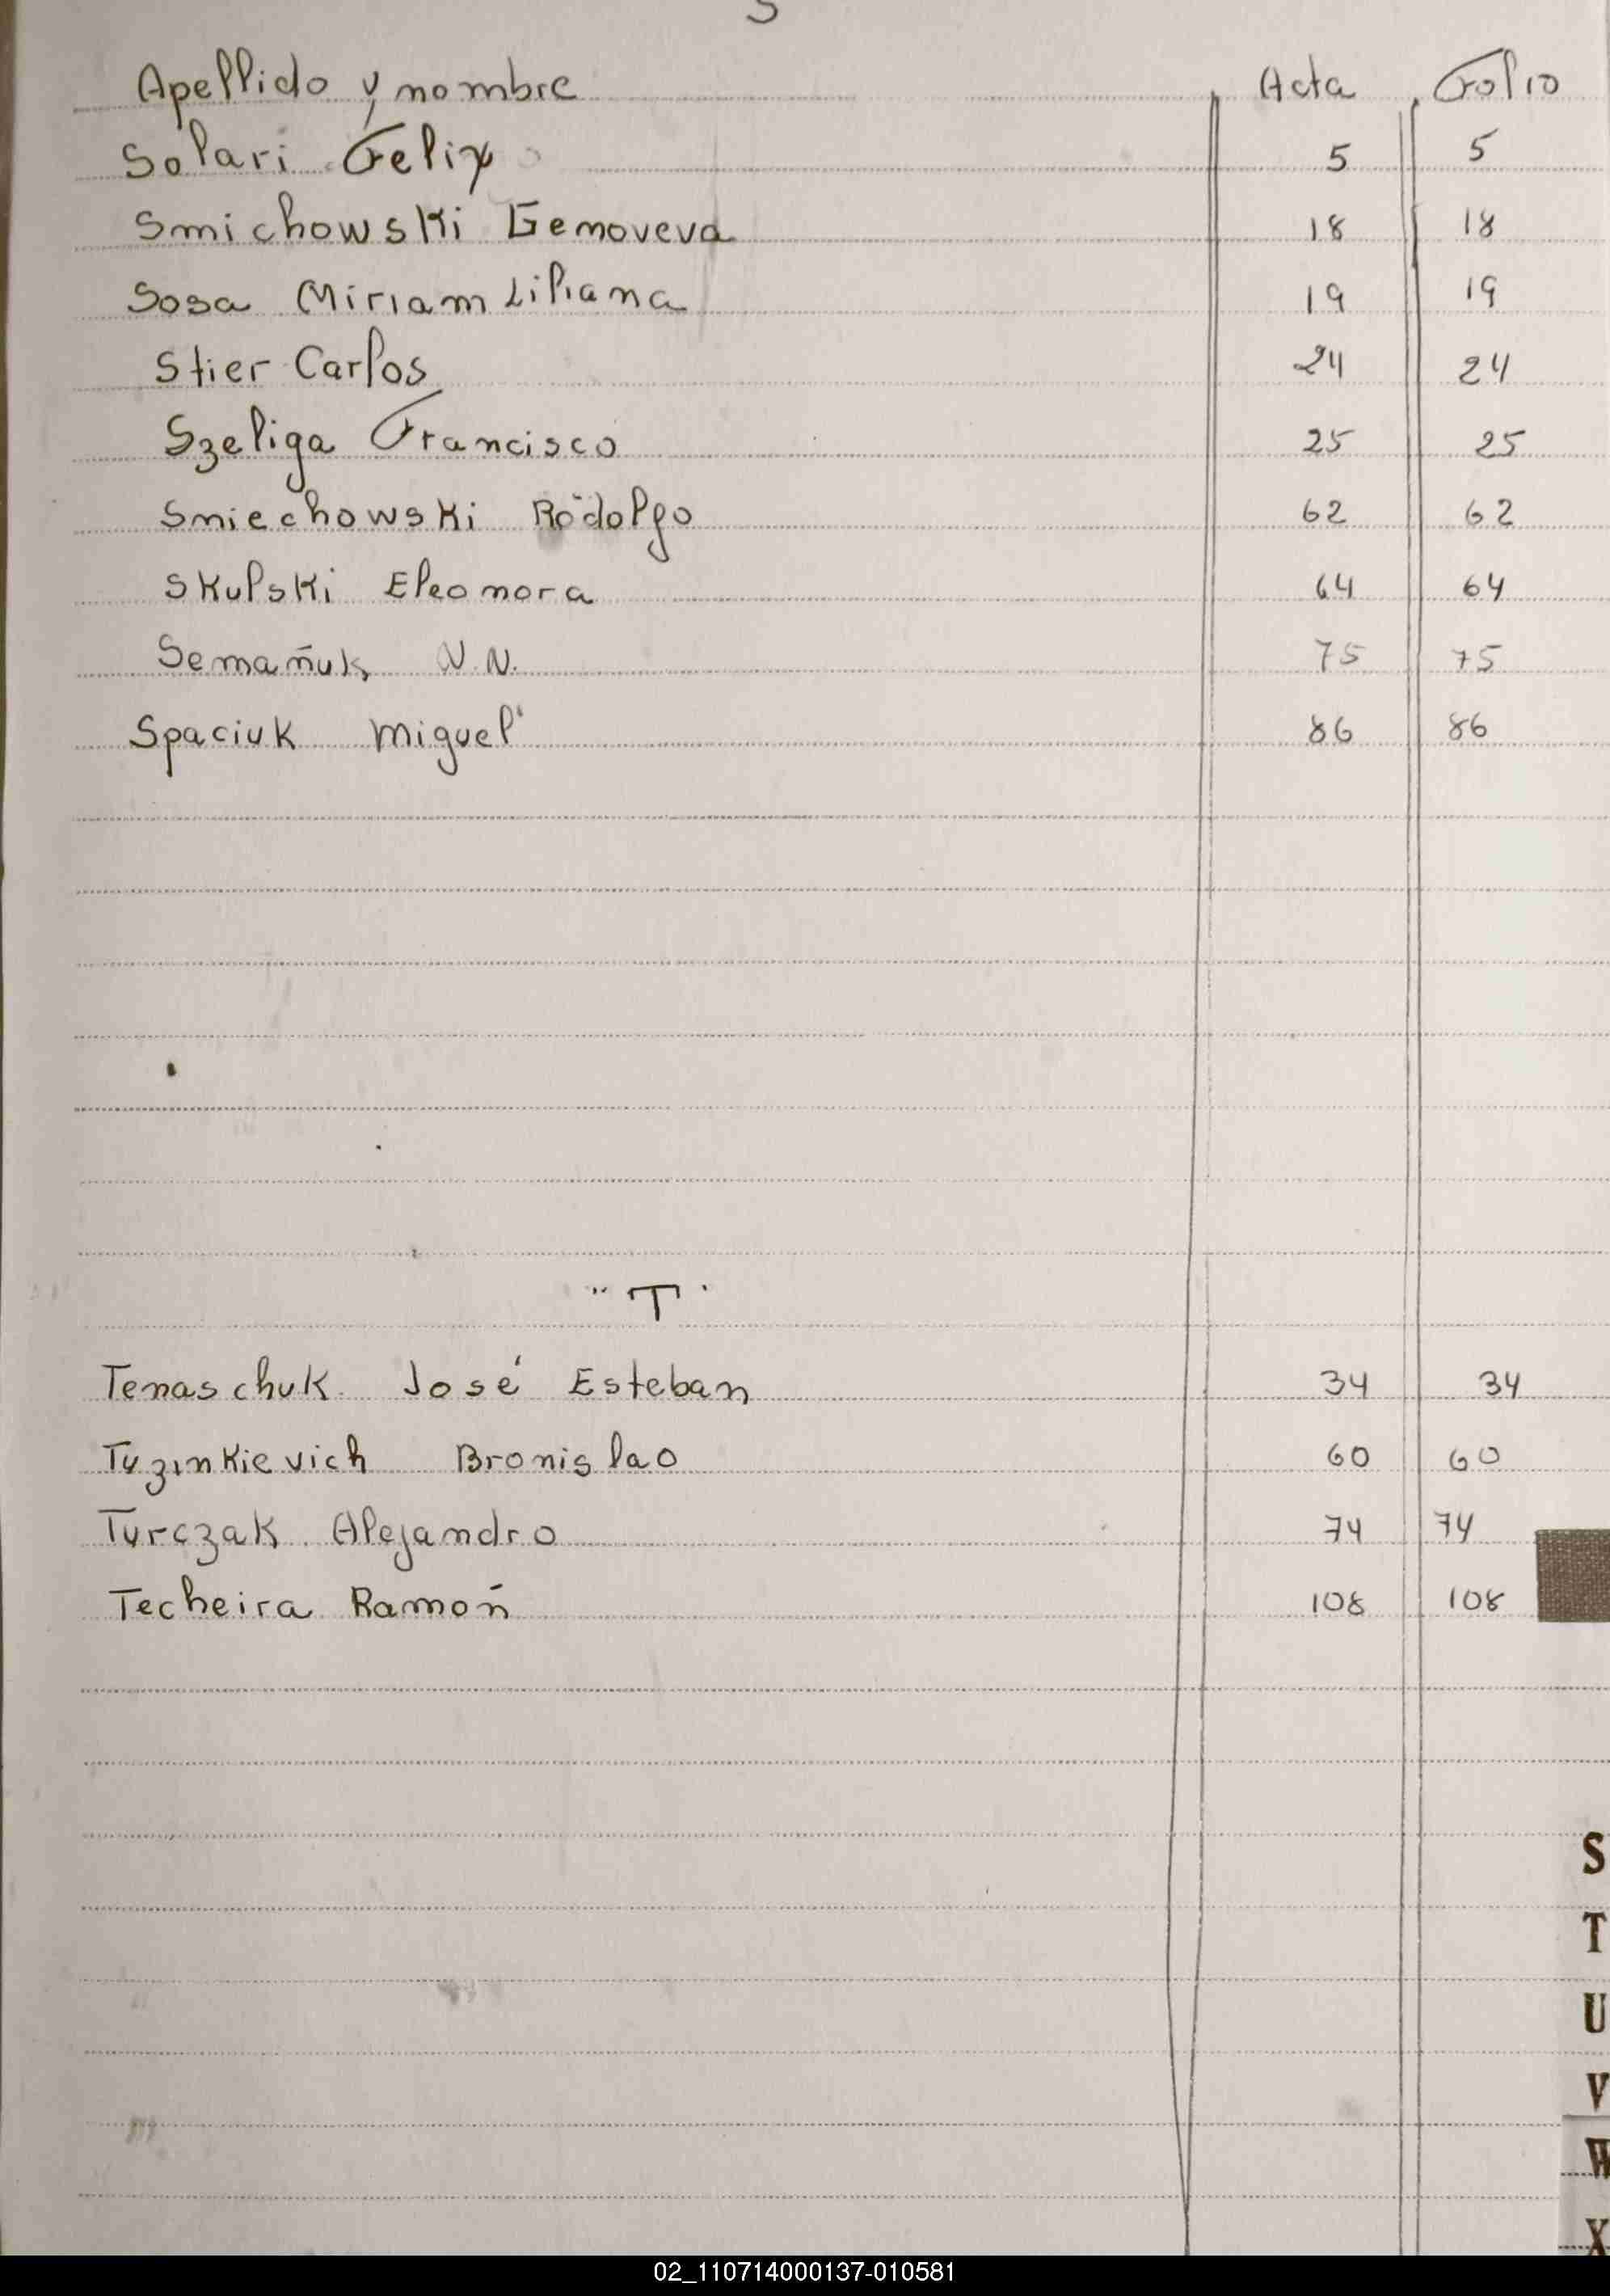 S
Apellido y nombre Acta Folio
Solari Felix 5 5
Smichowski Genoveva 18 18
Sosa Miriam Liliana 19 19
Stier Carlos 24 24
Szeliga Francisco 25 25
Smiechowski Rodolfo 62 62
Skulski Eleonora 64 64
Semañuk N.N. 75 75
Spaciuk Miguel 86 86
"T"
Tenaschuk José Esteban 34 34
Tuzinkievich Bronislao 60 60
Turczak Alejandro 74 74
Techeira Ramón 108 108
S
T
U
V
W
X
02_110714000137-010581